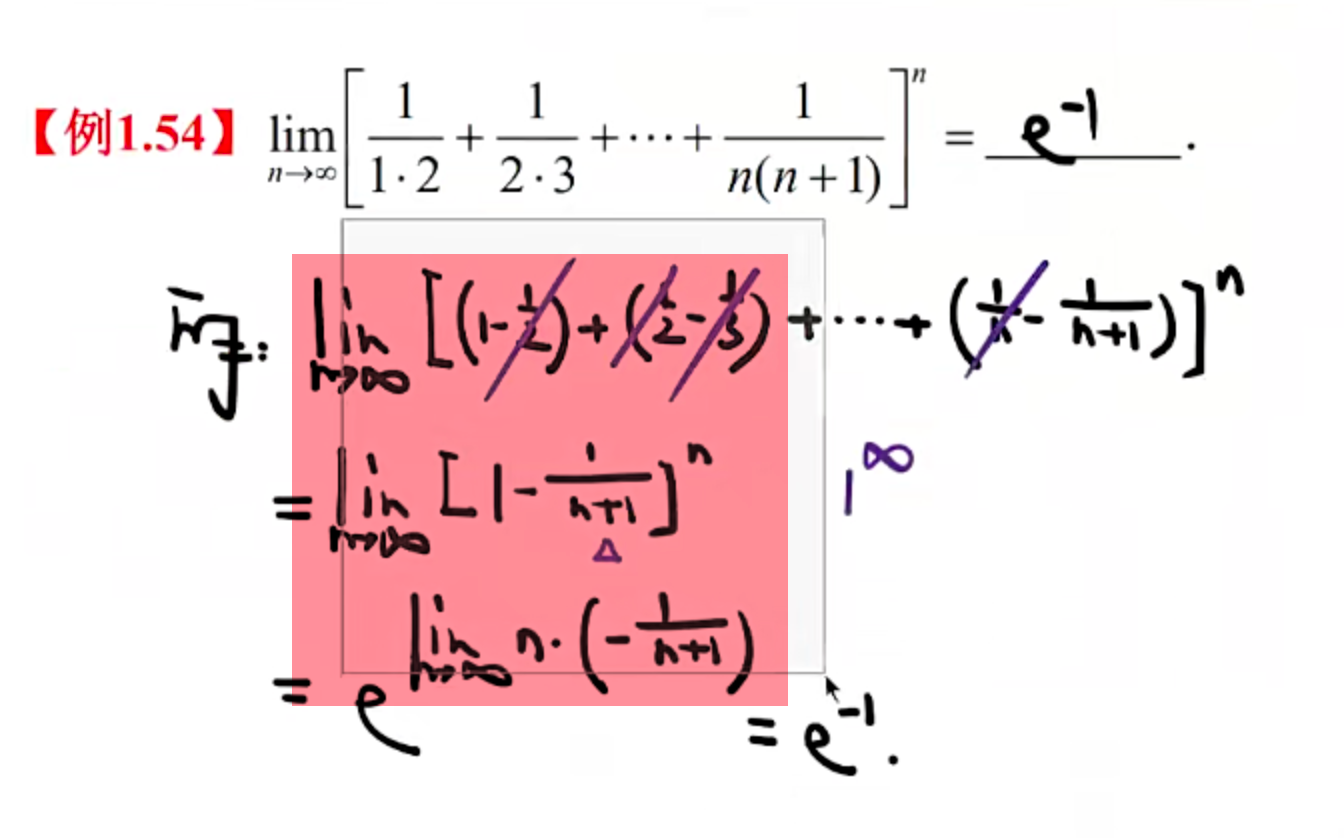 【例1.54】 lim n→∞ [1/(1·2) + 1/(2·3) + ⋯ + 1/(n(n+1))]^n = e^-1 .
原式: lim n→∞ [(1-1/2)+(1/2-1/3)+⋯+(1/n-1/(n+1))]^n
= lim n→∞ [1-1/(n+1)]^n 1^∞
Δ
= e^(lim n→∞ n·(-1/(n+1))) = e^-1.